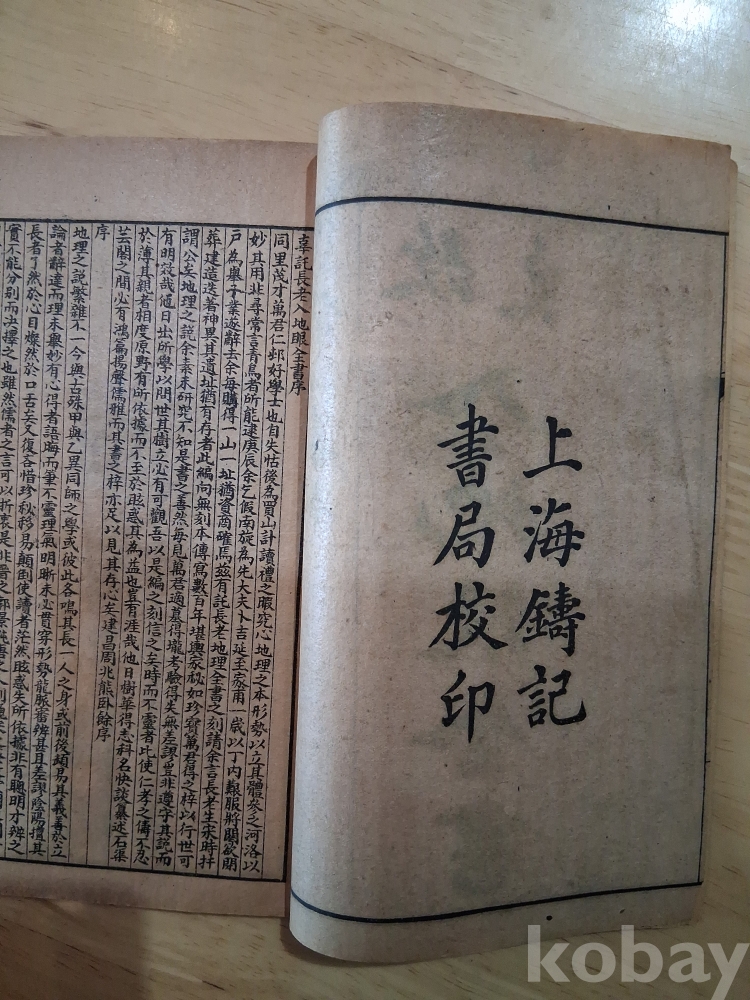 上海鑄記
書局校印
辜託長老入地眼全書序
同里茂才萬君仁邨好學士也自失怙後為買山計讀禮之暇究心地理之本形勢以立其體參之河洛以
妙其用非尋常言青烏者所能逮庚辰余乞假南旋為先大夫卜吉延至家甫一歲以丁內艱服將闋欲閉
戶為舉子業遂辭去余每購得一山一址猶資商確焉茲有託長老地理全書之刻請余言長老生宋時扦
葬建造迭著神異其遺址猶有存者此編向無刻本傳寫數百年堪輿家秘如珍寶萬君得之梓以行世可
謂公矣地理之説余素未研究不知是書之善然每見萬君適墓得壠考驗得失無差謬豈非遵守其説而
有明效哉他日出所學以問世其樹立必有可觀吾以是編之刻信之矣時而不靈者比使仁孝之儔不忍
於薄其親者相度原野有所依據而不至於眩惑其為益也豈有涯哉他日樹華得志科名快談纂述石渠
芸閣之間必有鴻篇揚聲儒雅而其書之梓亦足以見其存心矣建昌周兆熊臥餘序
序
地理之説繁雜不一今與古殊甲與乙異同師之學或彼此各鳴其長一人之身或前後頓易其義善於立
論者辭達而理未舉妙有心得者語晦而筆不靈理氣明晰未必貫穿形勢龍脈審辨甚且差謬陰陽擅其
長者了然於心目燦然於口舌矣又復吝惜珍秘移易顛倒使讀者茫然眩惑失所依據非有聰明才辨之
實不能分別而決擇之也雖然儒者之言可以折衷是非
kobay